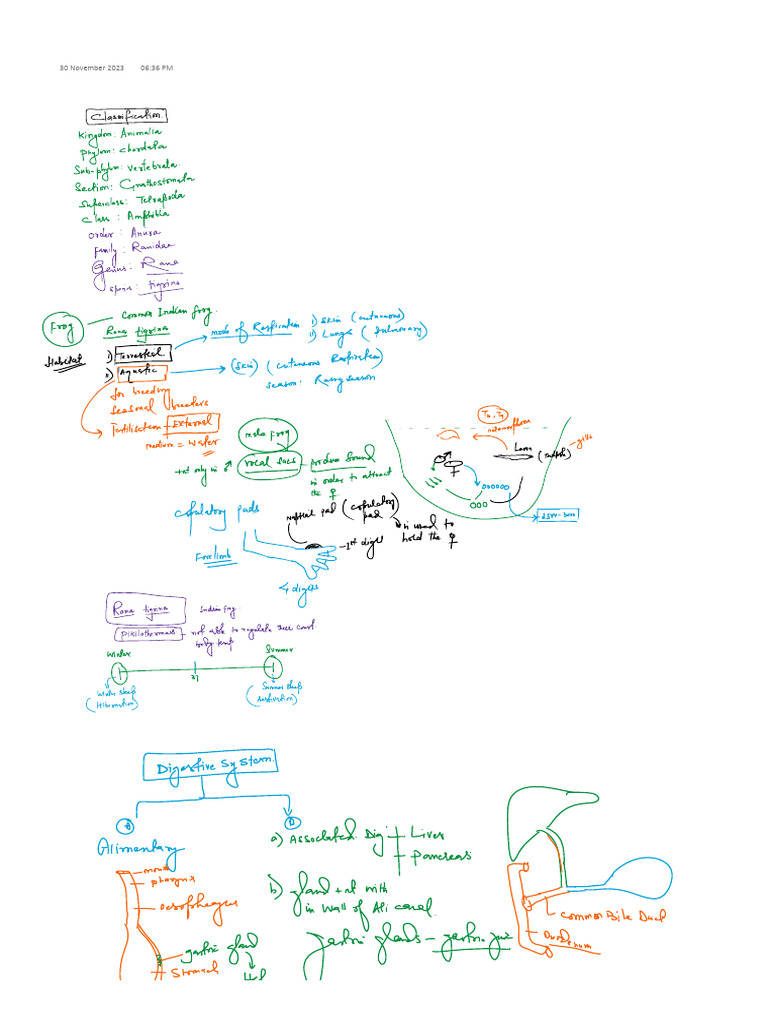 30 November 2023 06:36 PM
Classification
Kingdom: Animalia
Phylum: Chordata
Sub-phylum: Vertebrata
Section: Gnathostomata
Superclass: Tetrapoda
Class: Amphibia
Order: Anura
Family: Ranidae
Genus: Rana
tigrina
Frog
Common Indian frog.
Rana tigrina
Habitat
i) Terrestrial
ii) Aquatic
mode of Respiration
i) Skin (cutaneous)
ii) Lungs (Pulmonary)
(Skin) (cutaneous Respiration)
season: Rainy season
for breeding
seasonal breeders
Fertilisation - External
medium = water
male frog
+nt only in ♂
vocal sacs - produce sound
in order to attract
the ♀
T4, T3
metamorphosis
(tadpole)
gills
2500-3000
Copulatory pads
nuptial pad (copulatory pad)
is used to
hold the ♀
Forelimb
1st digit
4 digits
Rana tigrina
Indian frog
not able to regulate their const
body temp
Winter
Summer
37
Winter sleep
(Hibernation)
Summer sleep
Digestive System
Alimentary
a) Associated Dig
Liver
Pancreas
mouth
pharynx
oesophagus
b) gland +nt with
in wall of Ali canal.
gastric gland
Stomach
Hcl
Gastric glands - gastric juice
Common Bile Duct
Duodenum